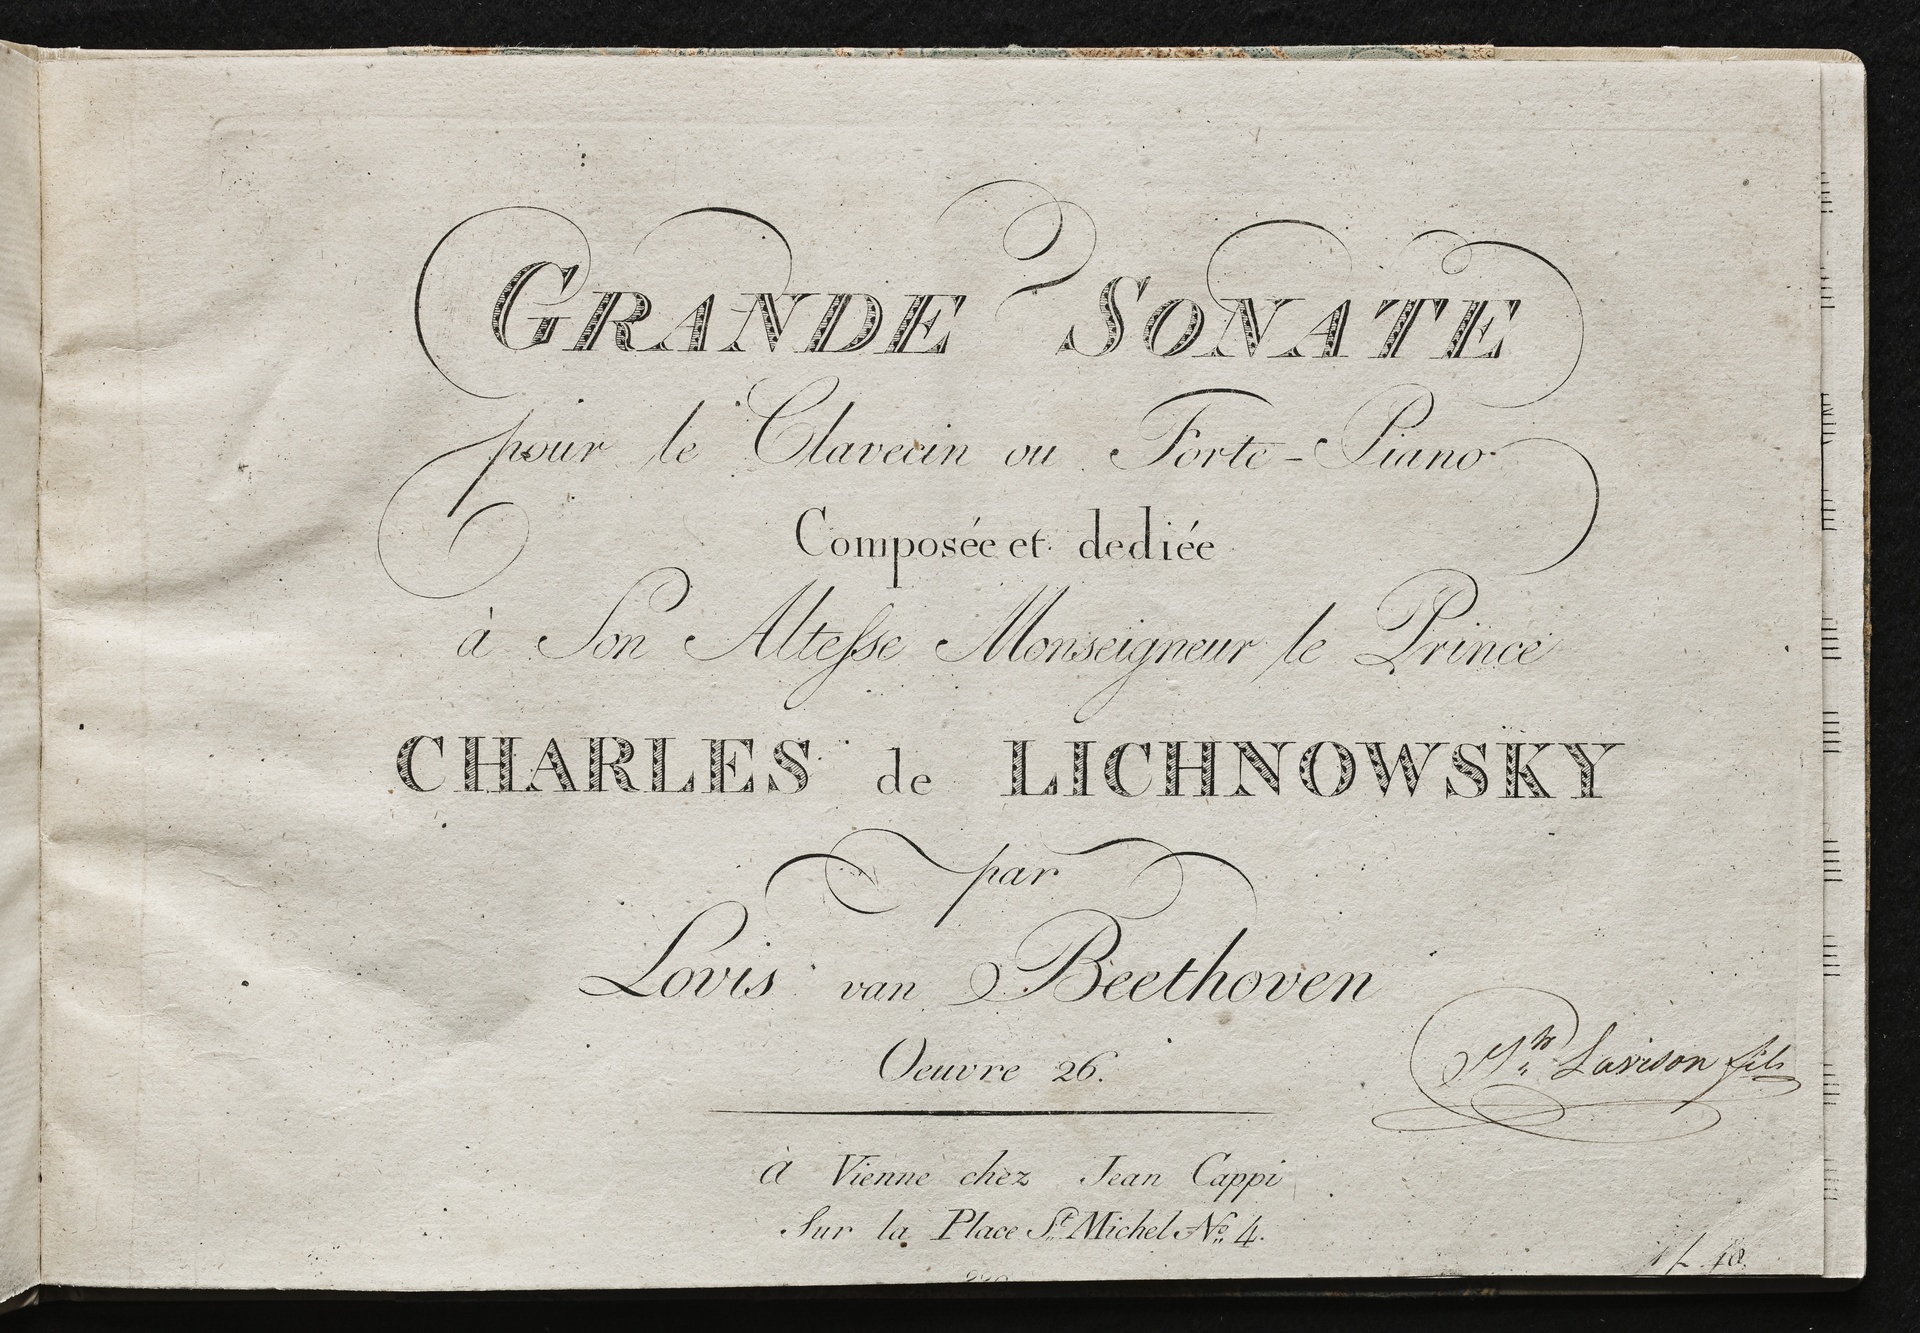 GRANDE SONATE
pour le Clavecin ou Forte-Piano
Composée et dediée
à Son Altesse Monseigneur le Prince
CHARLES de LICHNOWSKY
par
Lovis van Beethoven
Oeuvre 26.
fils
à Vienne chez Jean Cappi
Sur la Place St. Michel No. 4.